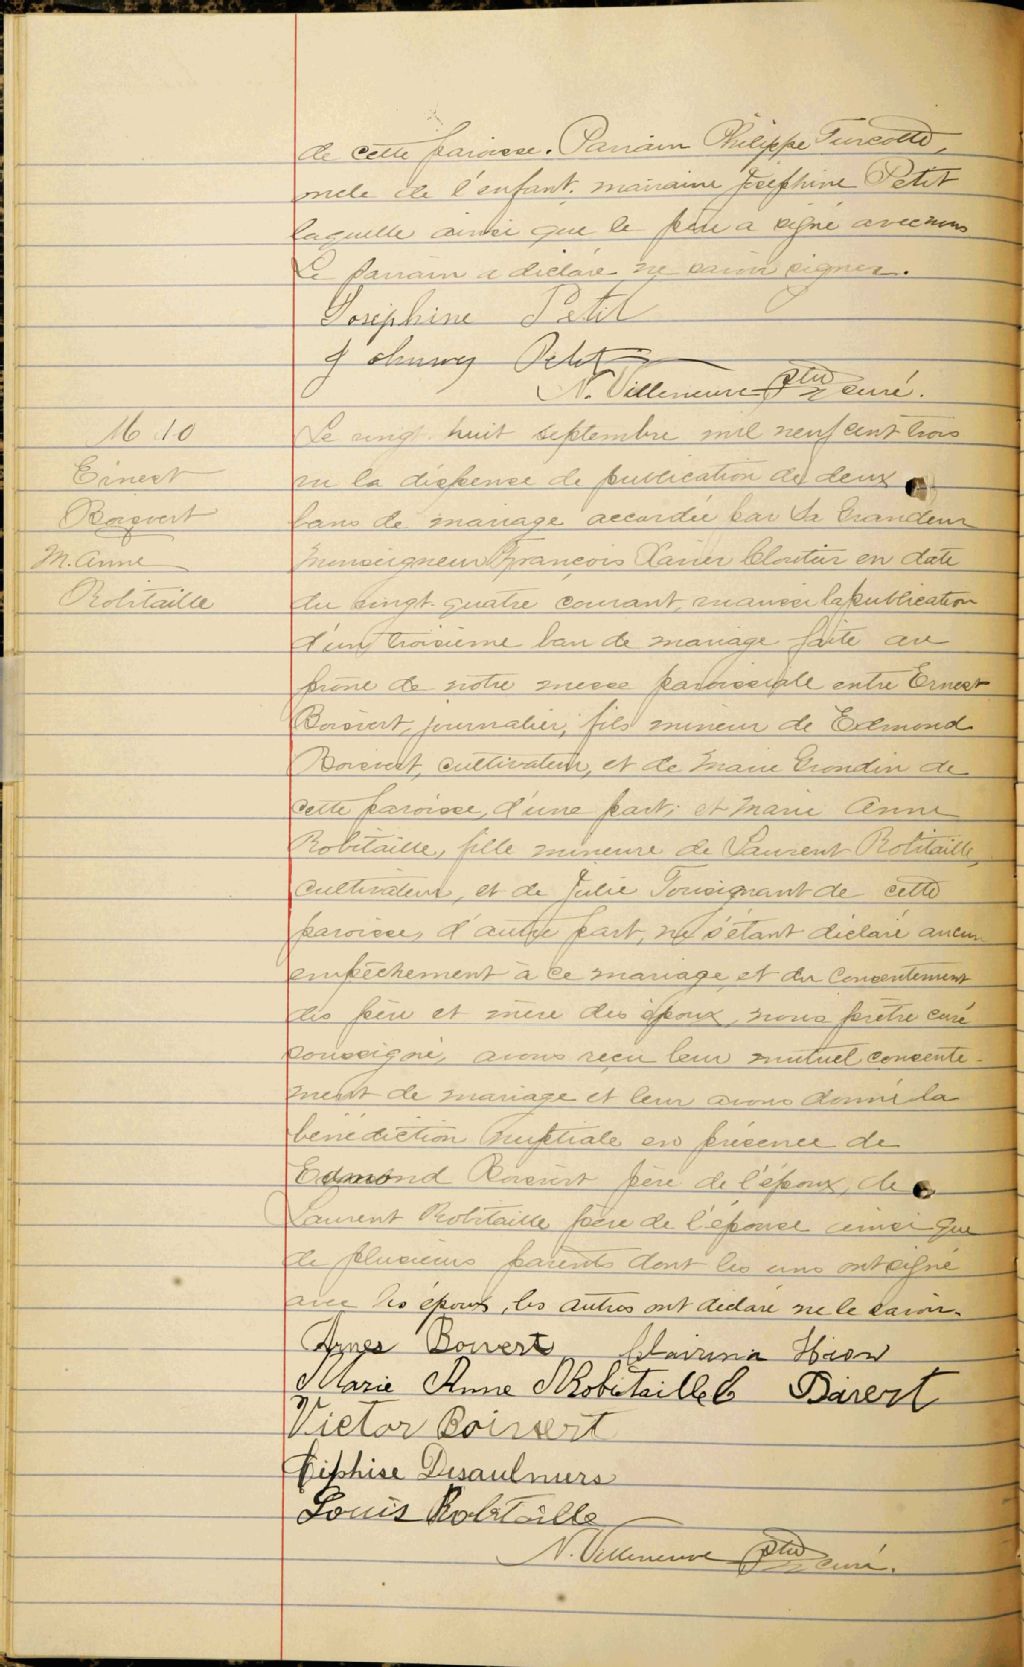 de cette paroisse. Parrain Philippe Turcotte,
oncle de l'enfant. marraine Joséphine Petit
laquelle ainsi que le père a signé avec nous
Le parrain a déclaré ne savoir signer.
Joséphine Petit
Johnny Petit
N. Villeneuve ptre curé.
M 10
Ernest
Boisvert
M. Anne
Robitaille
Le vingt-huit septembre mil neuf cent trois
vu la dispense de publication de deux
bans de mariage accordée par Sa Grandeur
Monseigneur François Xavier Cloutier en date
du vingt-quatre courant, vu aussi la publication
d'un troisième ban de mariage faite au
prône de notre messe paroissiale entre Ernest
Boisvert, journalier, fils mineur de Edmond
Boisvert, cultivateur, et de Marie Grondin de
cette paroisse, d'une part; et Marie Anne
Robitaille, fille mineure de Laurent Robitaille,
cultivateur, et de Julie Tousignant de cette
paroisse, d'autre part, ne s'étant déclaré aucun
empêchement à ce mariage, et du consentement
des père et mère des époux, nous prêtre curé
soussigné, avons reçu leur mutuel consente-
ment de mariage et leur avons donné la
bénédiction nuptiale en présence de
Edmond Boisvert père de l'époux, de
Laurent Robitaille père de l'épouse ainsi que
de plusieurs parents dont les uns ont signé
avec les époux, les autres ont déclaré ne le savoir.
Arnes Boivert
Marie Anne Robitaille
Victor Boisvert
Désaulniers
Louis Robitaille
N. Villeneuve ptre curé.